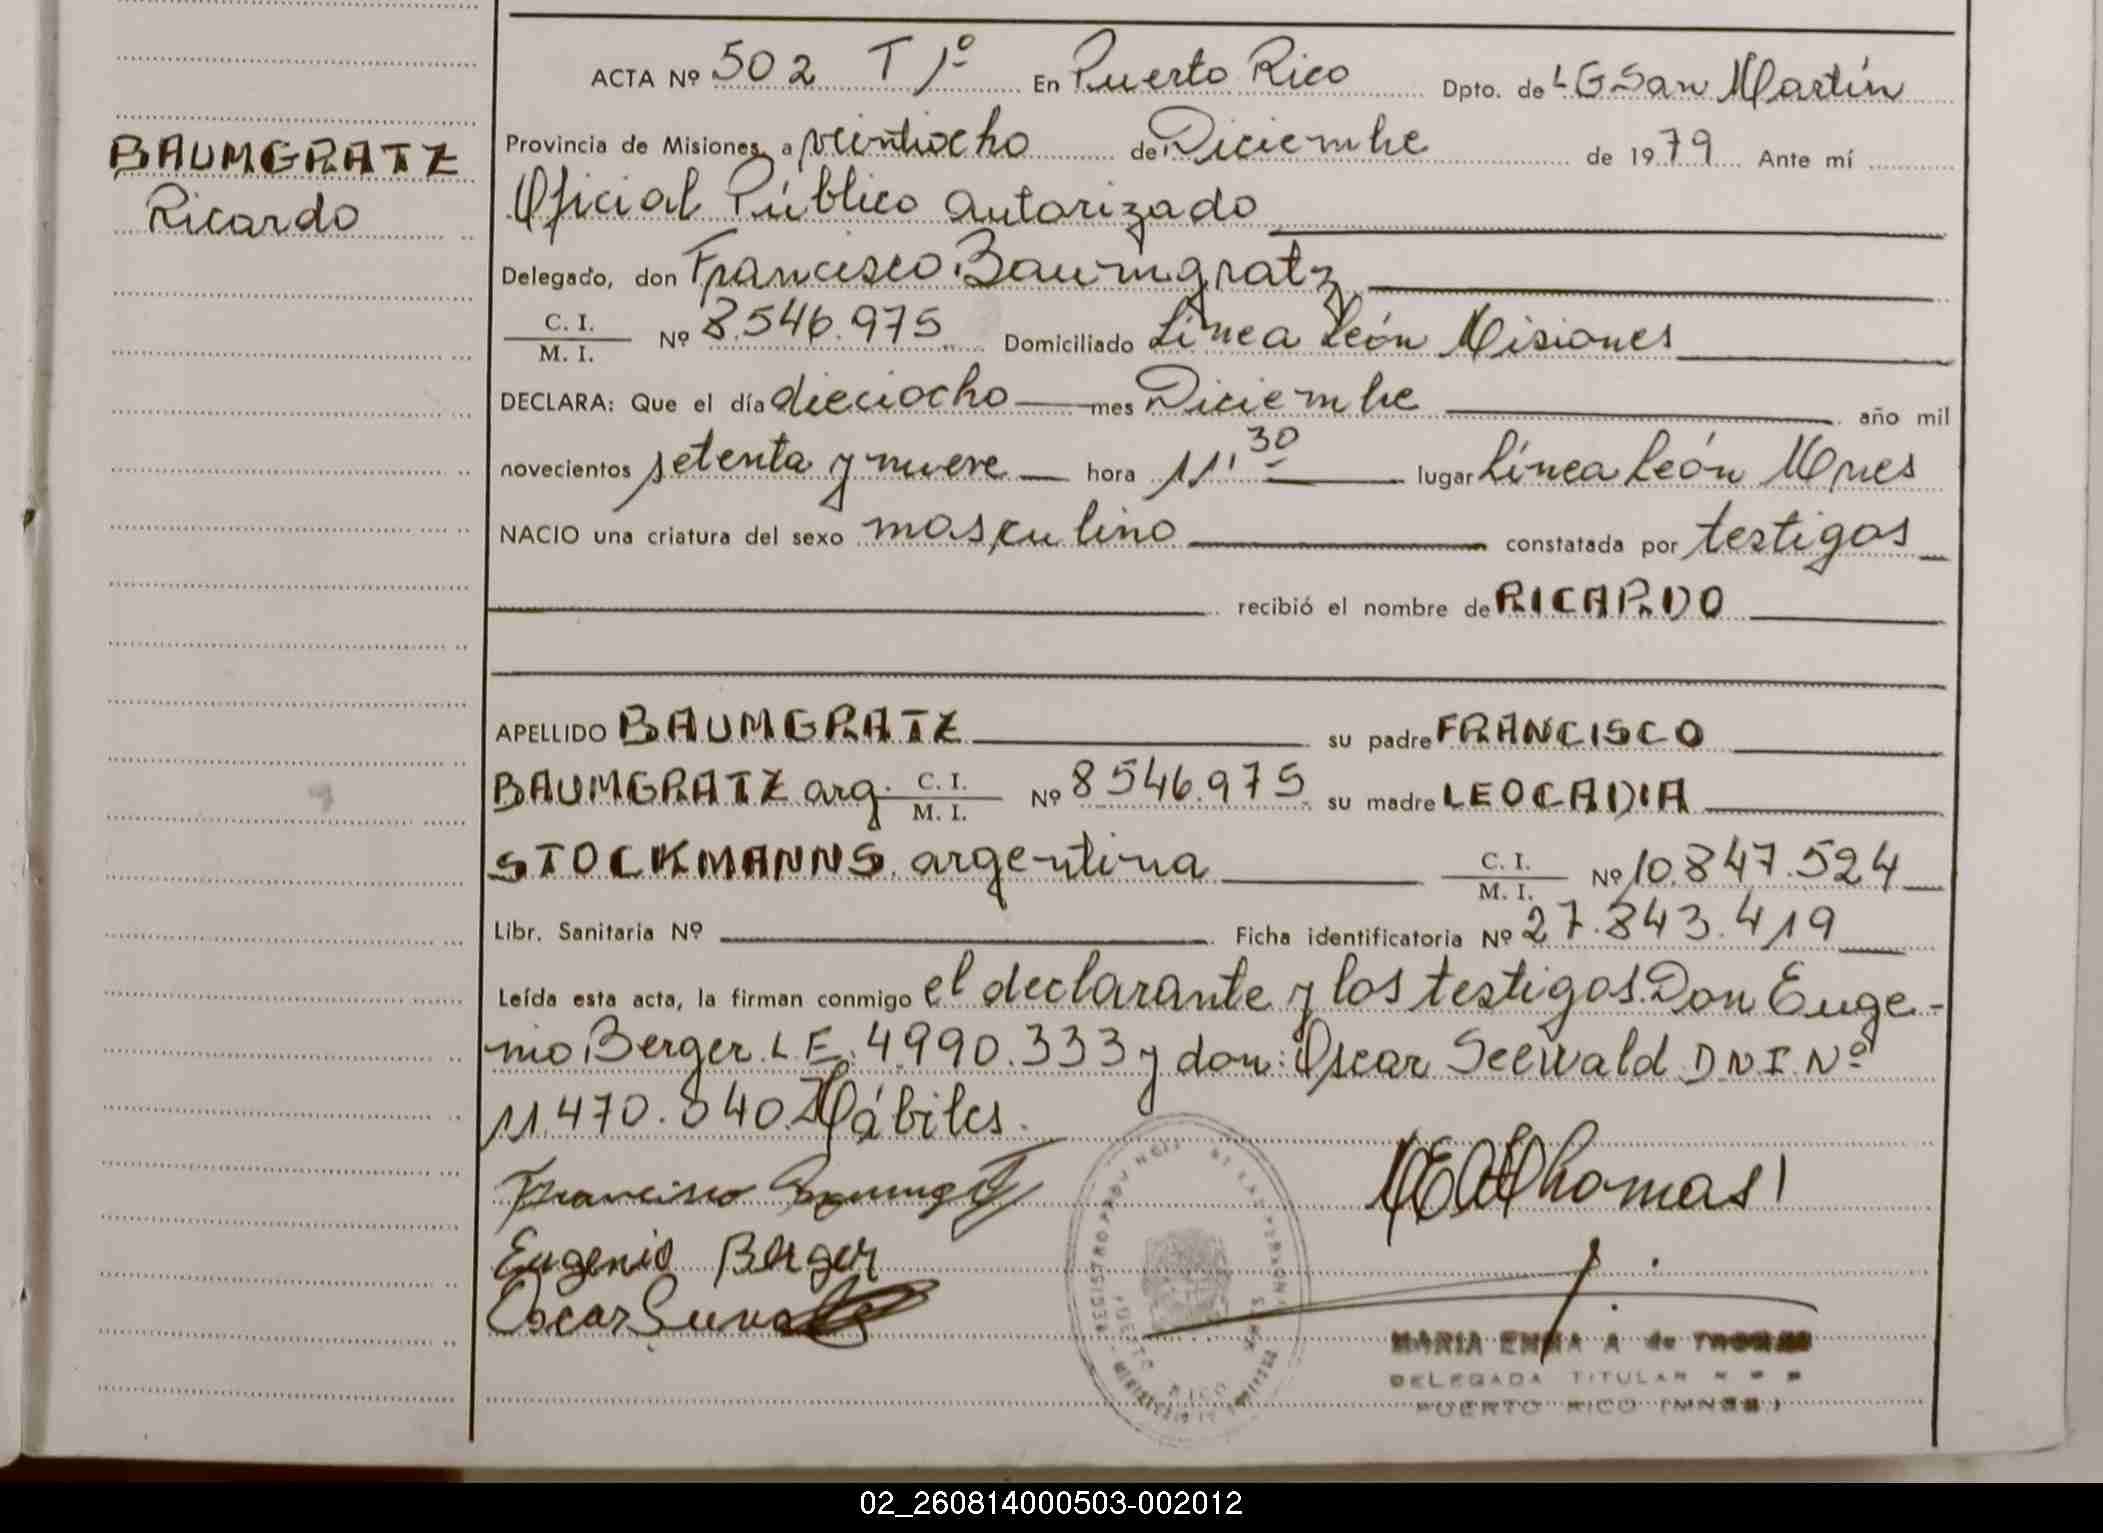 BAUMGRATZ
Ricardo
ACTA Nº 502 T 1º En Puerto Rico Dpto. de L G San Martín
Provincia de Misiones, a veintiocho de Diciembre de 1979 Ante mí
Oficial Público autorizado
Delegado, don Francisco Baumgratz
C. I. / M. I. Nº 8.546.975 Domiciliado Línea León Misiones
DECLARA: Que el día dieciocho mes Diciembre año mil
novecientos setenta y nueve hora 11,30 lugar Línea León Mnes
NACIO una criatura del sexo masculino constatada por testigos
recibió el nombre de RICARDO
APELLIDO BAUMGRATZ su padre FRANCISCO
BAUMGRATZ arg. C. I. / M. I. Nº 8546.975 su madre LEOCADIA
STOCKMANNS argentina C. I. / M. I. Nº 10.847.524
Libr. Sanitaria Nº Ficha identificatoria Nº 27.843.419
Leída esta acta, la firman conmigo el declarante y los testigos Don Euge-
nio Berger L E. 4.990.333 y don: Oscar Seewald D N I. Nº
11.470.840 Hábiles.
Francisco
Eugenio Berger
Oscar
Thomas
MARIA EMMA A de
DELEGADA TITULAR
PUERTO RICO (MNES)
PUERTO RICO
02_260814000503-002012